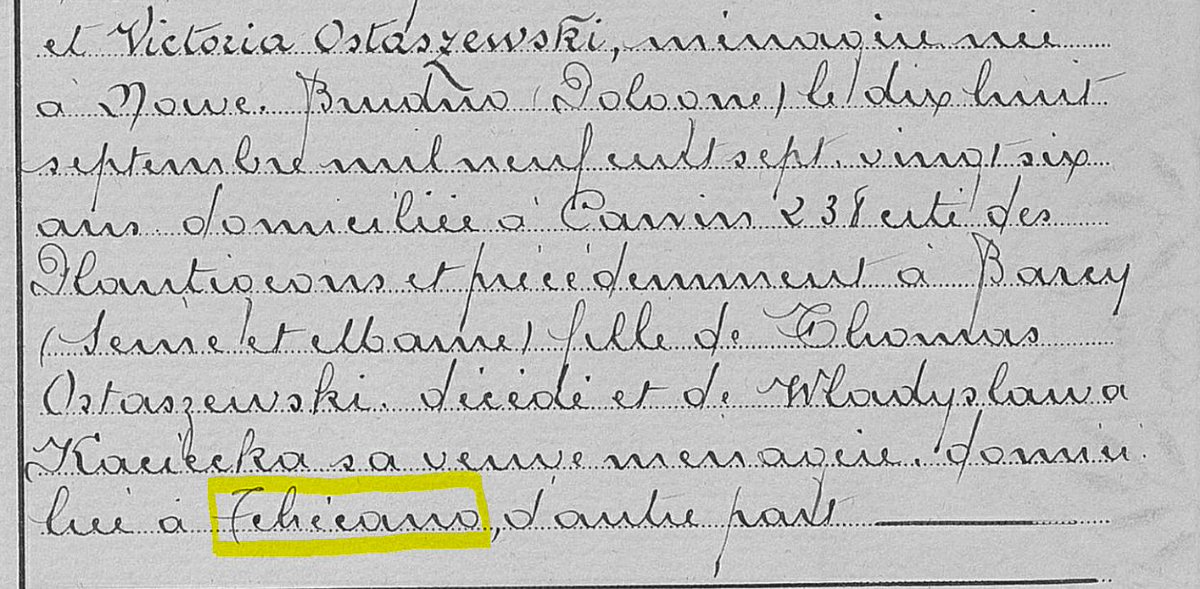 et Victoria Ostaszewski, ménagère née
à Nowe. Brudno (Pologne) le dix huit
septembre mil neuf cent sept. vingt six
ans domiciliée à Carvin 238 cité des
Plantigeons et précédemment à Barcy
(Seine et Marne) fille de Thomas
Ostaszewski. décédé et de Wladyslawa
Kaciecka sa veuve menagère. domici
liée à Tchécano, d'autre part